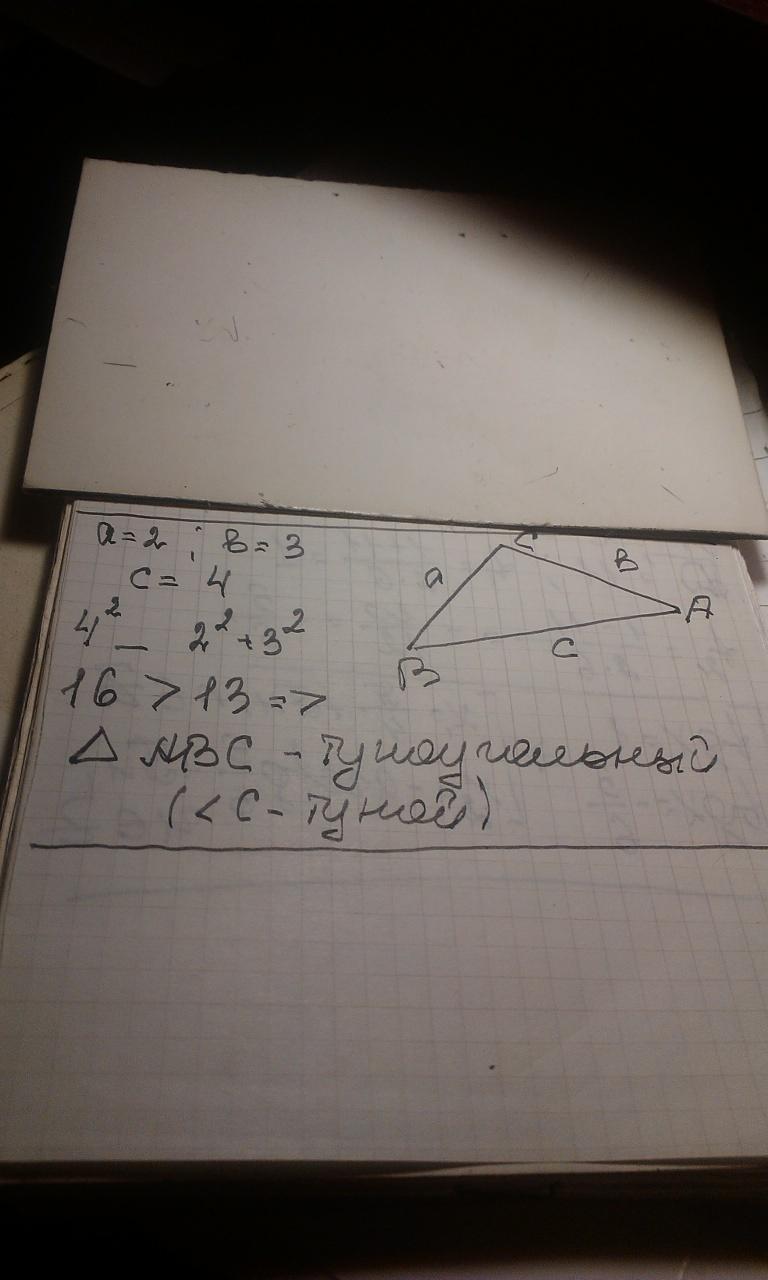 a=2 ; в=3
c= 4
4² _ 2²+3²
16 > 13 =>
△ ABC - тупоугольный
(< C - тупой)
C
a
в
A
B
c